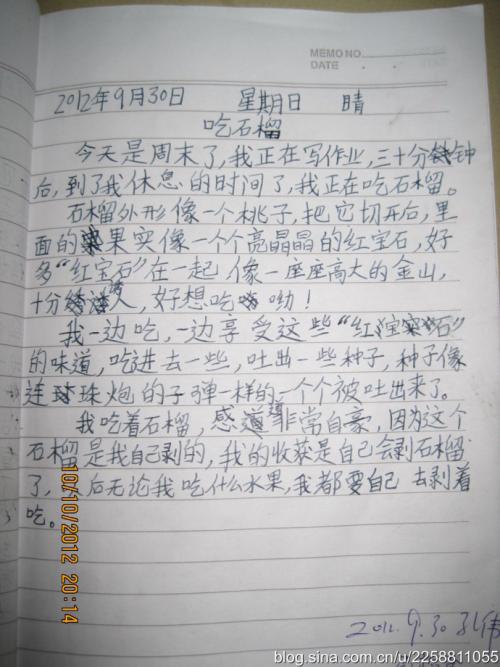 MEMO NO.
DATE . .
2012年9月30日 星期日 晴
吃石榴
今天是周末了,我正在写作业,三十分钟
后,到了我休息的时间了,我正在吃石榴。
石榴外形像一个桃子,把它切开后,里
面的果实像一个个亮晶晶的红宝石,好
多“红宝石”在一起像一座座高大的金山,
十分诱人,好想吃呦!
我一边吃,一边享受这些“红宝石”
的味道,吃进去一些,吐出一些种子,种子像
连珠炮的子弹一样的一个个被吐出来了。
我吃着石榴,感道非常自豪,因为这个
石榴是我自己剥的,我的收获是自己会剥石榴
了,后无论我吃什么水果,我都要自己去剥着
吃。
10/10/2012 20:14
2012.9.30
blog.sina.com.cn/u/2258811055